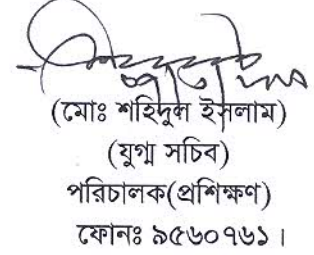 (মোঃ শহিদুল ইসলাম)
(যুগ্ম সচিব)
পরিচালক(প্রশিক্ষণ)
ফোনঃ ৯৫৬০৭৬১ ।